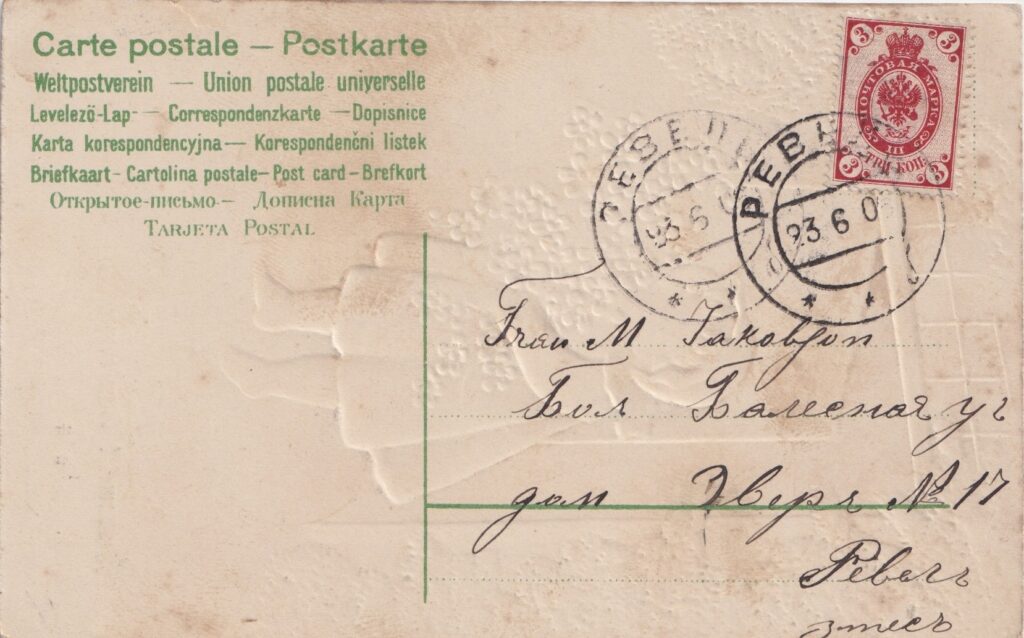 Carte postale – Postkarte
Weltpostverein — Union postale universelle
Levelezö-Lap — Correspondenzkarte — Dopisnice
Karta korespondencyjna — Korespondenčni listek
Briefkaart - Cartolina postale - Post card - Brefkort
Открытое-письмо – Дописна Карта
Tarjeta Postal
3 3
ПОЧТОВАЯ МАРКА
III
3 ТРИ КОП. 3
РЕВЕЛЬ
23 6 0
РЕВЕ
23 6 0
Frau M Jakobson
Бол
ул
дом Эверъ № 17
Ревель